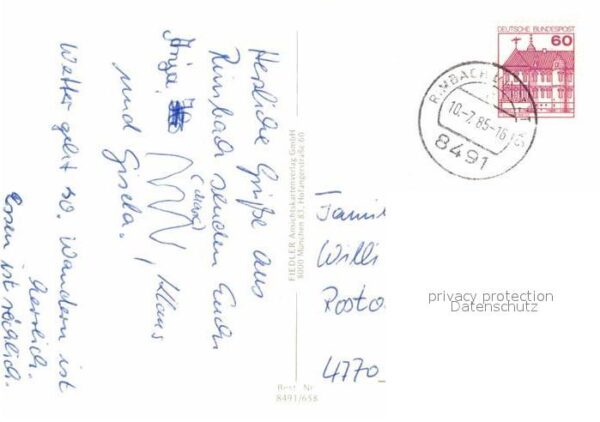 Herzliche Grüße aus
Rimbach senden Euch
Anja,
(Maxi)
, Klaus
und Gisela.
Wetter geht so. Wandern ist
herrlich.
Essen ist reichlich.
FIEDLER Ansichtskartenverlag GmbH
8000 München 83, Hofangerstraße 60
Best. Nr.
8491/658
DEUTSCHE BUNDESPOST
60
RIMBACH
10.-7.85-16
8491
Famil
Willi
Posto
4770
privacy protection
Datenschutz